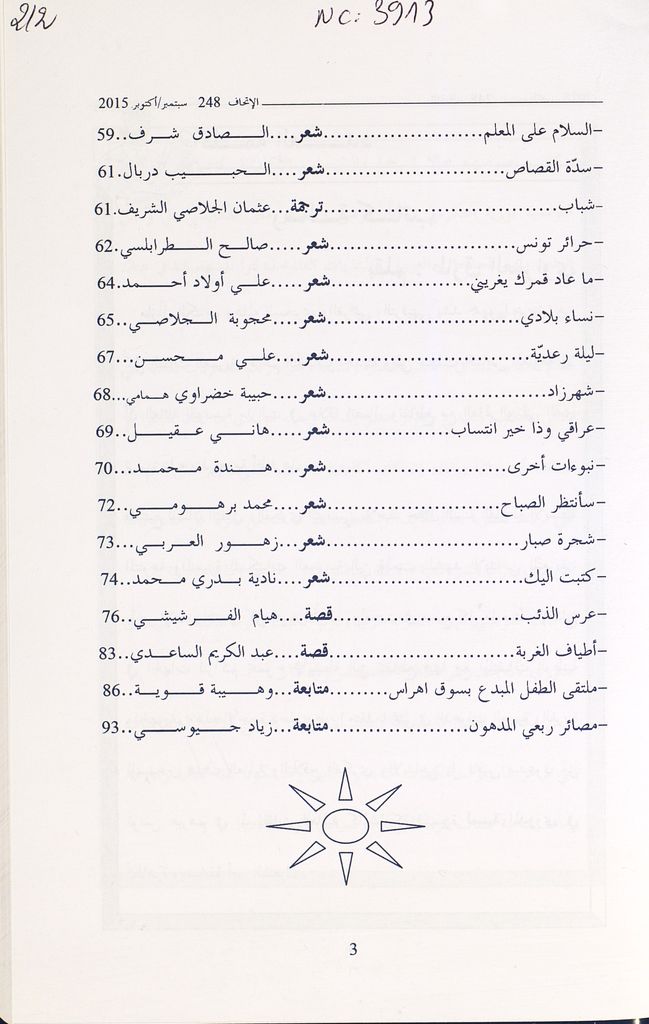 2/2
NC: 3913
الإتحاف 248 سبتمبر/أكتوبر 2015
–السلام على المعلم......................شعر....الصادق شرف..59
–سدّة القصاص.........................شعر....الحبيب دربال.61
–شباب...............................ترجمة...عثمان الجلاصي الشريف.61
–حرائر تونس........................شعر....صالح الطرابلسي.62
–ما عاد قمرك يغريني..................شعر....علي أولاد أحمد.64
–نساء بلادي.........................شعر....محجوبة الجلاصي..65
–ليلة رعديّة..........................شعر....علي محسن..67
–شهرزاد............................شعر....حبيبة خضراوي همامي...68
–عراقي وذا خير انتساب...............شعر....هاني عقيل..69
–نبوءات أخرى.......................شعر....هندة محمد...70
–سأنتظر الصباح......................شعر....محمد برهومي..72
–شجرة صبار.........................شعر....زهور العربي...73
–كتبت اليك.........................شعر....نادية بدري محمد..74
–عرس الذئب........................قصة....هيام الفرشيشي..76
–أطياف الغربة.......................قصة....عبد الكريم الساعدي..83
–ملتقى الطفل المبدع بسوق اهراس........متابعة...وهيبة قوية..86
–مصائر ربعي المدهون..................متابعة...زياد جيوسي..93
3